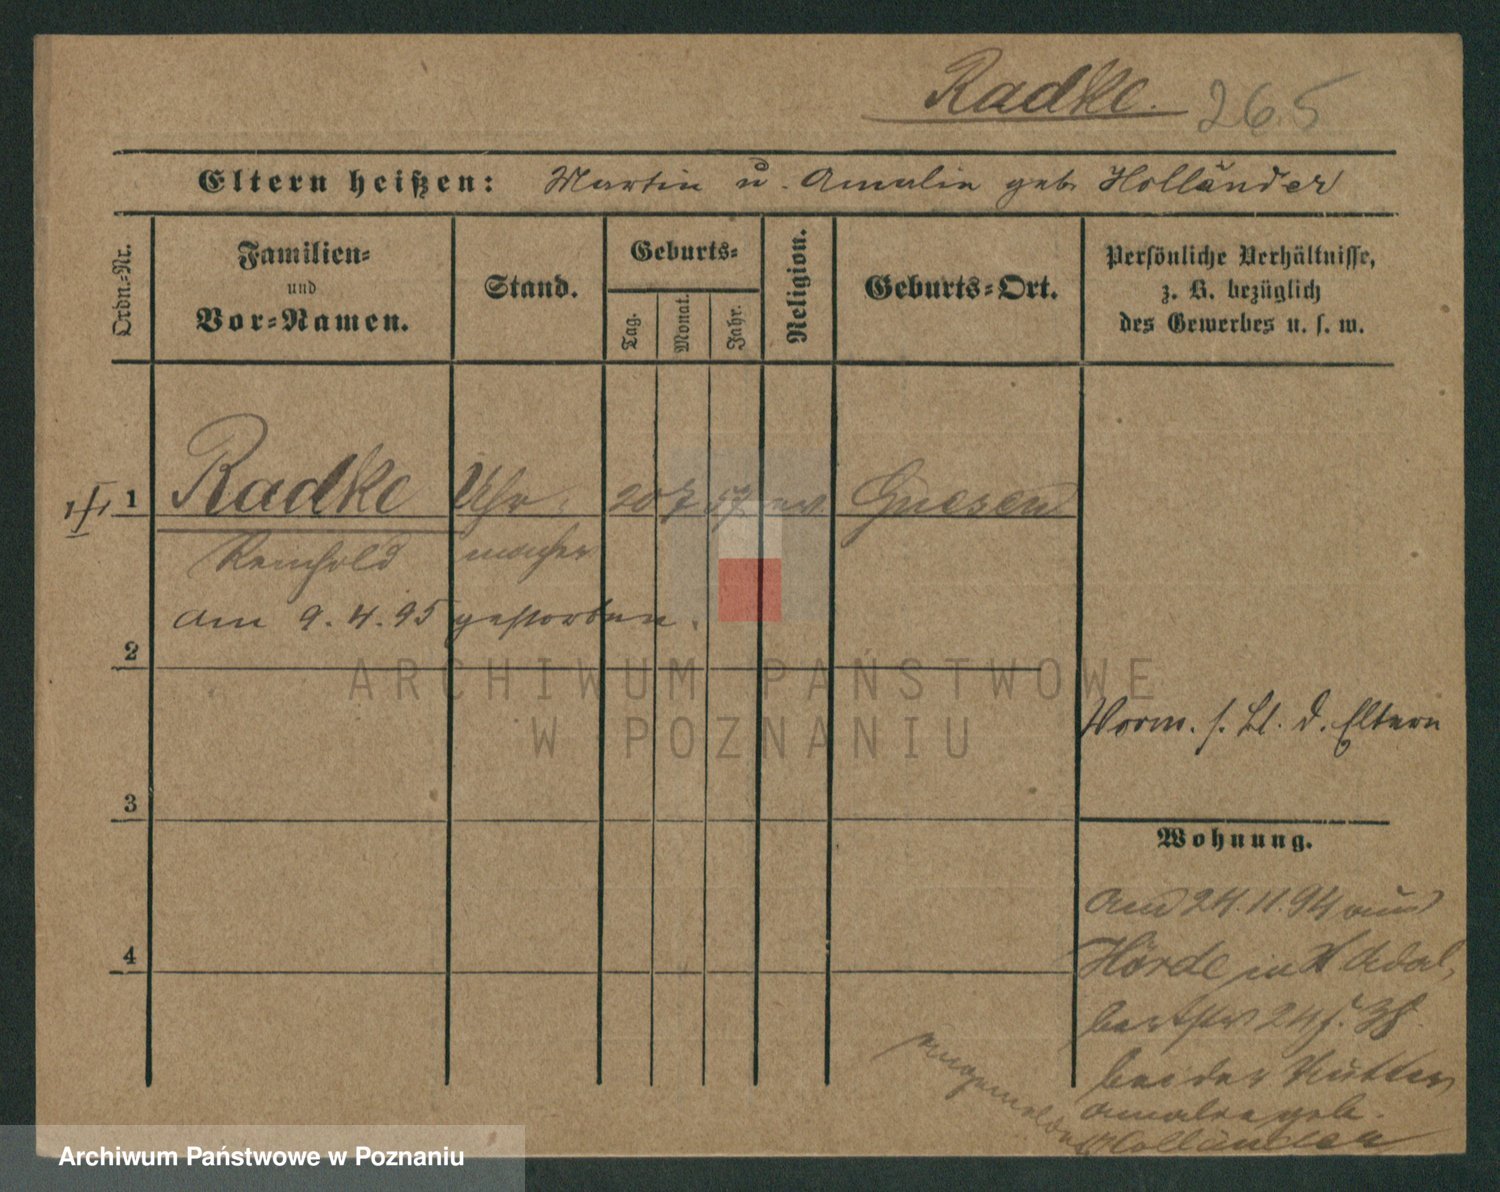 Radke. 265
Eltern heißen: Martin u. Amalie geb. Holländer
Ordn.-Nr.
Familien-
und
Vor-Namen.
Stand.
Geburts-
Tag.
Monat.
Jahr.
Religion.
Geburts-Ort.
Persönliche Verhältnisse,
z. B. bezüglich
des Gewerbes u. s. w.
1 Radke Uhr 20 7 57 ev. Gnesen
Reinhold macher
am 9.4.95 gestorben.
2
ARCHIWUM PAŃSTWOWE
W POZNANIU
Vorm. s. Bl. d. Eltern
3
Wohnung.
Am 24.11.94 aus
Hörde in Adal
bertstr 24
4
bei der Mutter
Amalie geb.
Holländer
angemeldet
Archiwum Państwowe w Poznaniu